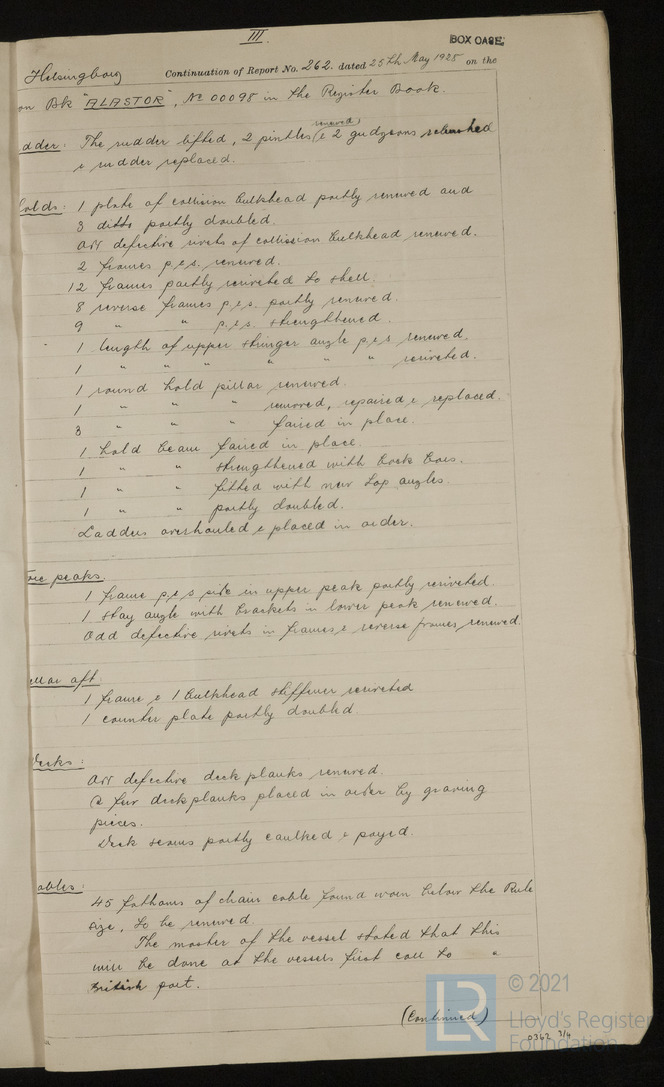 III
BOX CASE
Helsingborg Continuation of Report No. 262. dated 25th May 1925 on the
on Bk "ALASTOR", No 00095 in the Register Book.
dder: The rudder lifted, 2 pintles (renewed) & 2 gudgeons rebushed
& rudder replaced.
olds: 1 plate of collision bulkhead partly renewed and
3 ditto partly doubled.
All defective rivets of collission bulkhead renewed.
2 frames p.&s. renewed.
12 frames partly reriveted to shell.
8 reverse frames p.&s. partly renewed.
9 " " p.&s. strenghtened.
1 length of upper stringer angle p.&s. renewed.
1 " " " " " " reriveted.
1 round hold pillar renewed.
1 " " " removed, repaired & replaced.
3 " " " faired in place.
1 hold beam faired in place.
1 " " strenghtened with back bars.
1 " " fitted with new lap angles.
1 " " partly doubled.
Ladders overhauled & placed in order.
ore peaks:
1 frame p.&s side in upper peak partly reriveted.
1 stay angle with brackets in lower peak renewed.
Odd defective rivets in frames & reverse frames renewed.
ellar aft.
1 frame & 1 bulkhead stiffener reriveted
1 counter plate partly doubled.
Decks:
All defective deck planks renewed.
a few deckplanks placed in order by graving
pieces.
Deck seams partly caulked & payed.
ables:
45 fathoms of chain cable found worn below the Rule
size, to be renewed.
The master of the vessel stated that this
will be done at the vessels first call to a
British port.
(Continued)
LR
© 2021
Lloyd's Register
Foundation
0362 3/4